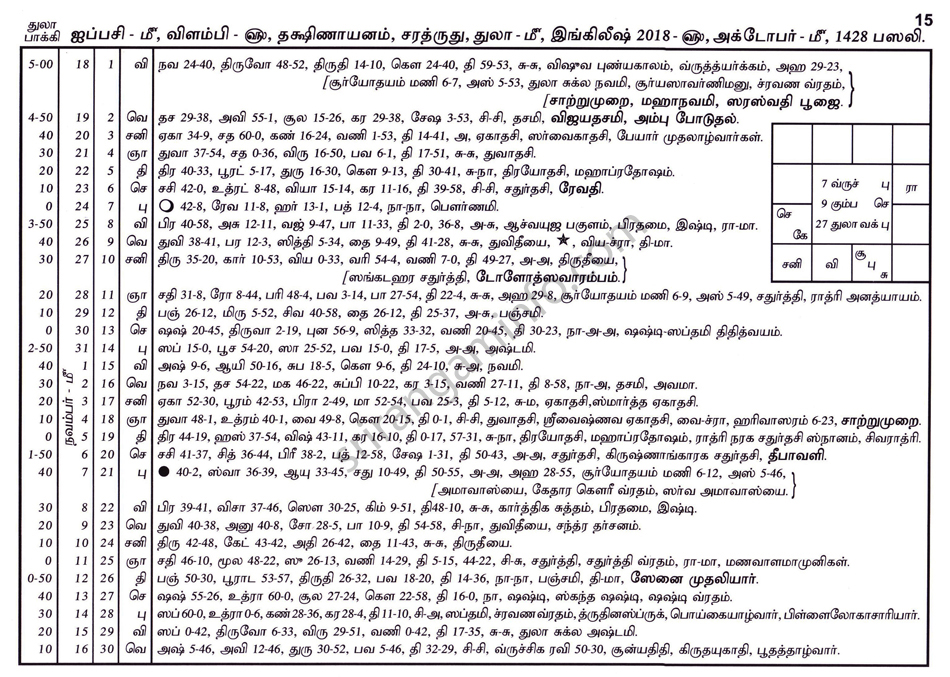 15
துலா பாக்கி ஐப்பசி - மீ, விளம்பி - ௵, தக்ஷிணாயனம், சரத்ருது, துலா - மீ, இங்கிலீஷ் 2018 - ௵, அக்டோபர் - மீ, 1428 பஸலி.
5-00 18 1 வி நவ 24-40, திருவோ 48-52, த்ருதி 14-10, கௌ 24-40, தி 59-53, சு-சு, விஷுவ புண்யகாலம், வ்ருத்த்யர்க்கம், அஹ 29-23,
[சூர்யோதயம் மணி 6-7, அஸ் 5-53, துலா சுக்ல நவமி, சூர்யஸாவர்ணிமனு, ச்ரவண வ்ரதம்,
[சாற்றுமுறை, மஹாநவமி, ஸரஸ்வதி பூஜை.
4-50 19 2 வெ தச 29-38, அவி 55-1, சூல 15-26, கர 29-38, சேஷ 3-53, சி-சி, தசமி, விஜயதசமி, அம்பு போடுதல்.
40 20 3 சனி ஏகா 34-9, சத 60-0, கண் 16-24, வணி 1-53, தி 14-41, அ, ஏகாதசி, ஸர்வைகாதசி, பேயார் முதலாழ்வார்கள்.
30 21 4 ஞா துவா 37-54, சத 0-36, விரு 16-50, பவ 6-1, தி 17-51, சு-சு, துவாதசி.
20 22 5 தி திர 40-33, பூரட் 5-17, துரு 16-30, கௌ 9-13, தி 30-41, சு-நா, திரயோதசி, மஹாப்ரதோஷம்.
10 23 6 செ சசி 42-0, உத்ரட் 8-48, வியா 15-14, கர 11-16, தி 39-58, சி-சி, சதுர்தசி, ரேவதி.
0 24 7 பு 42-8, ரேவ 11-8, ஹர் 13-1, பத் 12-4, நா-நா, பௌர்ணமி.
3-50 25 8 வி பிர 40-58, அசு 12-11, வஜ் 9-47, பா 11-33, தி 2-0, 36-8, அ-சு, ஆச்வயுஜ பகுளம், பிரதமை, இஷ்டி, ரா-மா.
40 26 9 வெ துவி 38-41, பர 12-3, ஸித்தி 5-34, தை 9-49, தி 41-28, சு-சு, துவிதீயை, ★, விய-ச்ரா, தி-மா.
30 27 10 சனி திரு 35-20, கார் 10-53, விய 0-33, வரி 54-4, வணி 7-0, தி 49-27, அ-அ, திருதீயை,
[ஸங்கடஹர சதுர்த்தி, டோளோத்ஸவாரம்பம்.
20 28 11 ஞா சதி 31-8, ரோ 8-44, பரி 48-4, பவ 3-14, பா 27-54, தி 22-4, சு-சு, அஹ 29-8, சூர்யோதயம் மணி 6-9, அஸ் 5-49, சதுர்த்தி, ராத்ரி அனத்யாயம்.
10 29 12 தி பஞ் 26-12, மிரு 5-52, சிவ 40-58, தை 26-12, தி 25-37, அ-சு, பஞ்சமி.
0 30 13 செ ஷஷ் 20-45, திருவா 2-19, புன 56-9, ஸித்த 33-32, வணி 20-45, தி 30-23, நா-அ-அ, ஷஷ்டி-ஸப்தமி திதித்வயம்.
2-50 31 14 பு ஸப் 15-0, பூச 54-20, ஸா 25-52, பவ 15-0, தி 17-5, அ-அ, அஷ்டமி.
40 1 15 வி அஷ் 9-6, ஆயி 50-16, சுப 18-5, கௌ 9-6, தி 24-10, சு-அ, நவமி.
நவம்பர் - மீ
30 2 16 வெ நவ 3-15, தச 54-22, மக 46-22, சுப்பி 10-22, கர 3-15, வணி 27-11, தி 8-58, நா-அ, தசமி, அவமா.
20 3 17 சனி ஏகா 52-30, பூரம் 42-53, பிரா 2-49, மா 52-54, பவ 25-3, தி 5-12, சு-ம, ஏகாதசி, ஸ்மார்த்த ஏகாதசி.
10 4 18 ஞா துவா 48-1, உத்ரம் 40-1, வை 49-8, கௌ 20-15, தி 0-1, சி-சி, துவாதசி, ஸ்ரீவைஷ்ணவ ஏகாதசி, வை-ச்ரா, ஹரிவாஸரம் 6-23, சாற்றுமுறை.
0 5 19 தி திர 44-19, ஹஸ் 37-54, விஷ் 43-11, கர 16-10, தி 0-17, 57-31, சு-நா, திரயோதசி, மஹாப்ரதோஷம், ராத்ரி நரக சதுர்தசி ஸ்நானம், சிவராத்ரி.
1-50 6 20 செ சசி 41-37, சித் 36-44, பிரீ 38-2, பத் 12-58, சேஷ 1-31, தி 50-43, அ-அ, சதுர்தசி, கிருஷ்ணாங்காரக சதுர்தசி, தீபாவளி.
40 7 21 பு 40-2, ஸ்வா 36-39, ஆயு 33-45, சது 10-49, தி 50-55, அ-அ, அஹ 28-55, சூர்யோதயம் மணி 6-12, அஸ் 5-46,
[அமாவாஸ்யை, கேதார கௌரீ வ்ரதம், ஸர்வ அமாவாஸ்யை.
30 8 22 வி பிர 39-41, விசா 37-46, ஸௌ 30-25, கிம் 9-51, தி48-10, சு-சு, கார்த்திக சுத்தம், பிரதமை, இஷ்டி.
20 9 23 வெ துவி 40-38, அனு 40-8, சோ 28-5, பா 10-9, தி 54-58, சி-நா, துவிதீயை, சந்த்ர தர்சனம்.
10 10 24 சனி திரு 42-48, கேட் 43-42, அதி 26-42, தை 11-43, சு-சு, திருதீயை.
0 11 25 ஞா சதி 46-10, மூல 48-22, ஸு 26-13, வணி 14-29, தி 5-15, 44-22, சி-சு, சதுர்த்தி, சதுர்த்தி வ்ரதம், ரா-மா, மணவாளமாமுனிகள்.
0-50 12 26 தி பஞ் 50-30, பூராட 53-57, த்ருதி 26-32, பவ 18-20, தி 14-36, நா-நா, பஞ்சமி, தி-மா, ஸேனை முதலியார்.
40 13 27 செ ஷஷ் 55-26, உத்ரா 60-0, சூல 27-24, கௌ 22-58, தி 16-0, நா, ஷஷ்டி, ஸ்கந்த ஷஷ்டி, ஷஷ்டி வ்ரதம்.
30 14 28 பு ஸப் 60-0, உத்ரா 0-6, கண் 28-36, கர 28-4, தி 11-10, சி-அ, ஸப்தமி, ச்ரவண வ்ரதம், த்ருதினஸ்ப்ருக், பொய்கையாழ்வார், பிள்ளைலோகாசாரியார்.
20 15 29 வி ஸப் 0-42, திருவோ 6-33, விரு 29-51, வணி 0-42, தி 17-35, சு-சு, துலா சுக்ல அஷ்டமி.
10 16 30 வெ அஷ் 5-46, அவி 12-46, துரு 30-52, பவ 5-46, தி 32-29, சி-சி, வ்ருச்சிக ரவி 50-30, சூன்யதிதி, கிருதயுகாதி, பூதத்தாழ்வார்.
7 வ்ருச் பு
9 கும்ப செ
27 துலா வக் பு
ரா
செ
கே
சனி
வி
சூ
பு
சு
srirangaminfo.com